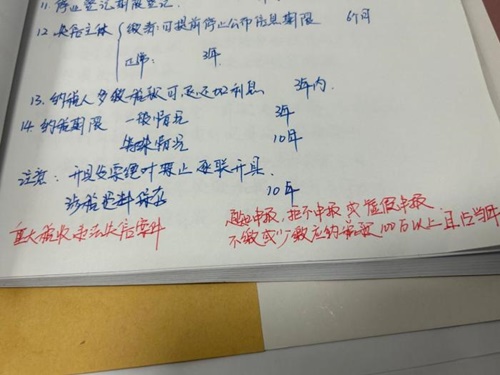 11. 停止登记期限登记.
12. 失信主体 缴款可提前停止公布信息期限 6个月
正常: 3年
13. 纳税人多缴税款可退还加利息 3年内.
14. 纳税期限 一般情况 3年
特殊情况 10年
注意: 开具发票 禁止 联开具.
涉税资料保存 10年
重大税收违法失信案件
申报, 拒不申报 或 虚假申报
不缴或少缴应纳税款100万以上且占当年